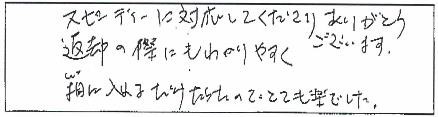 スピーディーに対応してくださりありがとう
ございます。
返却の際にもわかりやすく
箱に入れるだけだったのでとても楽でした。